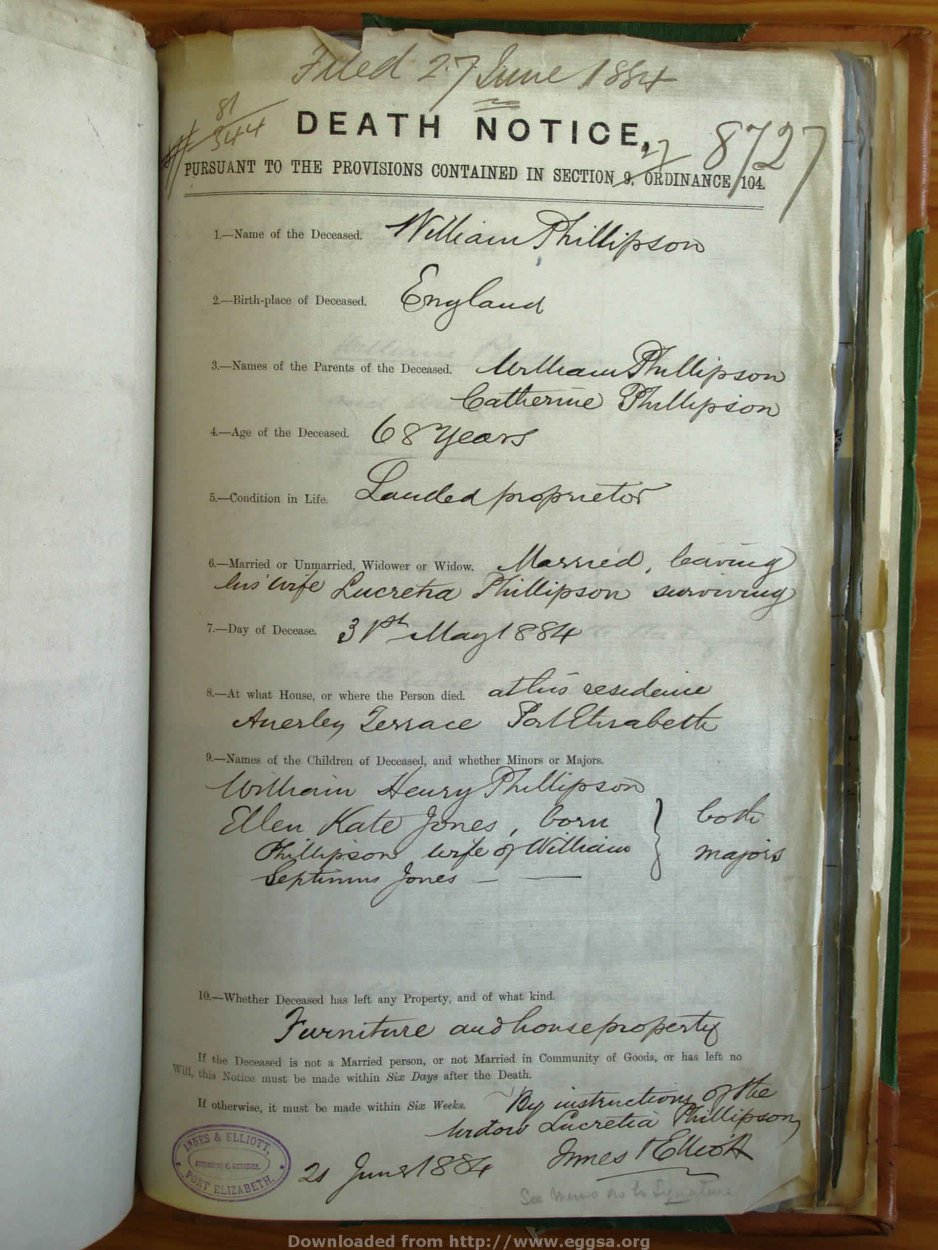 Filed 27 June 1884
81
344
DEATH NOTICE,
8727
27
PURSUANT TO THE PROVISIONS CONTAINED IN SECTION 9, ORDINANCE 104.
1.—Name of the Deceased. William Phillipson
2.—Birth-place of Deceased. England
3.—Names of the Parents of the Deceased. William Phillipson
Catherine Phillipson
4.—Age of the Deceased. 68 Years
5.—Condition in Life. Landed proprietor
6.—Married or Unmarried, Widower or Widow. Married, leaving
his wife Lucretia Phillipson surviving
7.—Day of Decease. 31st May 1884
8.—At what House, or where the Person died. at his residence
Anerley Terrace Port Elizabeth
9.—Names of the Children of Deceased, and whether Minors or Majors.
William Henry Phillipson
Ellen Kate Jones, born } both
Phillipson wife of William majors
Septimus Jones — —
10.—Whether Deceased has left any Property, and of what kind.
Furniture and house property
If the Deceased is not a Married person, or not Married in Community of Goods, or has left no
Will, this Notice must be made within Six Days after the Death.
If otherwise, it must be made within Six Weeks. By instructions of the
widow Lucretia Phillipson
Innes & Elliott
21 June 1884
INNES & ELLIOTT,
PORT ELIZABETH.
See Memo as to Signature
Downloaded from http://www.eggsa.org